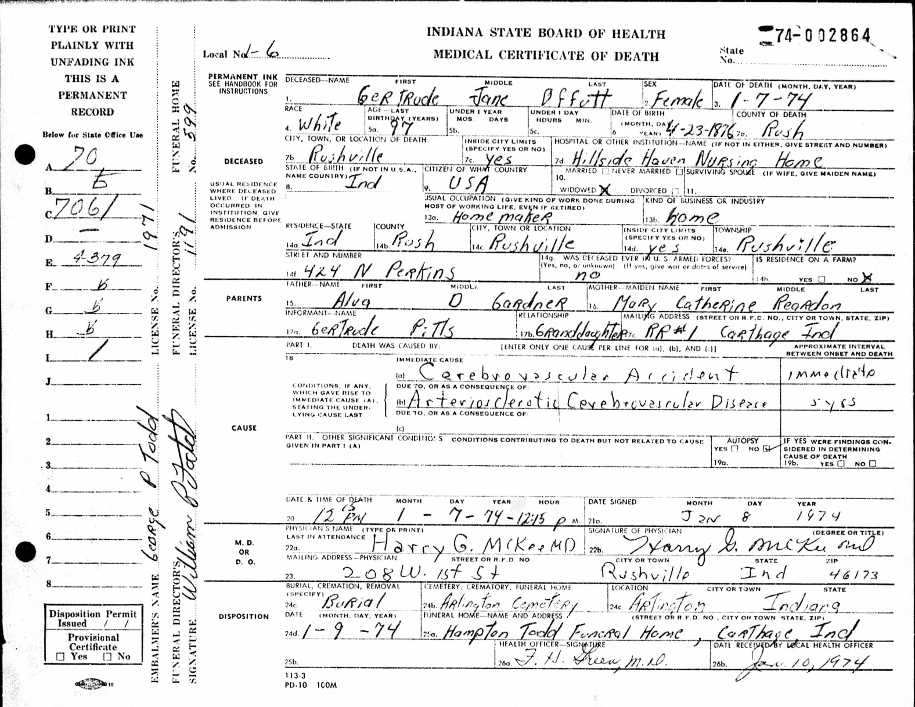 TYPE OR PRINT
PLAINLY WITH
UNFADING INK
THIS IS A
PERMANENT
RECORD
Below for State Office Use
A. 70
B. 6
C. 7061
D. —
E. 4379
F. 6
G. 6
H. 6
I. /
J.
1.
2.
3.
4.
5.
6.
7.
8.
Disposition Permit
Issued / /
Provisional
Certificate
☐ Yes ☐ No
EMBALMER'S NAME George P Todd LICENSE No. 1971
FUNERAL DIRECTOR'S SIGNATURE William P Todd
FUNERAL DIRECTOR'S LICENSE No. 1191
FUNERAL HOME No. 399
INDIANA STATE BOARD OF HEALTH
MEDICAL CERTIFICATE OF DEATH
Local No. 1-6
State No. 74-002864
PERMANENT INK
SEE HANDBOOK FOR
INSTRUCTIONS
DECEASED—NAME FIRST MIDDLE LAST SEX DATE OF DEATH (MONTH, DAY, YEAR)
1. Gertrude Jane Offutt 2. Female 3. 1-7-74
RACE AGE—LAST BIRTHDAY (YEARS) UNDER 1 YEAR MOS DAYS UNDER 1 DAY HOURS MIN. DATE OF BIRTH (MONTH, DAY, YEAR) COUNTY OF DEATH
4. White 5a. 97 5b. 5c. 6. 4-23-1876 7a. Rush
CITY, TOWN, OR LOCATION OF DEATH INSIDE CITY LIMITS (SPECIFY YES OR NO) HOSPITAL OR OTHER INSTITUTION—NAME (IF NOT IN EITHER, GIVE STREET AND NUMBER)
DECEASED
7b. Rushville 7c. yes 7d. Hillside Haven Nursing Home
STATE OF BIRTH (IF NOT IN U.S.A., NAME COUNTRY) CITIZEN OF WHAT COUNTRY MARRIED ☐ NEVER MARRIED ☐ SURVIVING SPOUSE (IF WIFE, GIVE MAIDEN NAME)
8. Ind 9. USA 10. WIDOWED X DIVORCED ☐ 11.
USUAL RESIDENCE
WHERE DECEASED
LIVED. IF DEATH
OCCURRED IN
INSTITUTION, GIVE
RESIDENCE BEFORE
ADMISSION
USUAL OCCUPATION (GIVE KIND OF WORK DONE DURING MOST OF WORKING LIFE, EVEN IF RETIRED) KIND OF BUSINESS OR INDUSTRY
13a. Home maker 13b. home
RESIDENCE—STATE COUNTY CITY, TOWN OR LOCATION INSIDE CITY LIMITS (SPECIFY YES OR NO) TOWNSHIP
14a. Ind 14b. Rush 14c. Rushville 14d. yes 14e. Rushville
STREET AND NUMBER 14g. WAS DECEASED EVER IN U.S. ARMED FORCES? (Yes, no, or unknown) (If yes, give war or dates of service) IS RESIDENCE ON A FARM?
14f. 424 N Perkins no 14h. YES ☐ NO X
FATHER—NAME FIRST MIDDLE LAST MOTHER—MAIDEN NAME FIRST MIDDLE LAST
PARENTS
15. Alva O Gardner 16. Mary Catherine Reardon
INFORMANT—NAME RELATIONSHIP MAILING ADDRESS (STREET OR R.F.D. NO., CITY OR TOWN, STATE, ZIP)
17a. Gertrude Pitts 17b. Granddaughter RR #1 Carthage Ind
PART I. DEATH WAS CAUSED BY: [ENTER ONLY ONE CAUSE PER LINE FOR (a), (b), AND (c)] APPROXIMATE INTERVAL BETWEEN ONSET AND DEATH
18 IMMEDIATE CAUSE
(a) Cerebrovascular Accident immediate
CONDITIONS, IF ANY,
WHICH GAVE RISE TO
IMMEDIATE CAUSE (A),
STATING THE UNDER-
LYING CAUSE LAST
DUE TO, OR AS A CONSEQUENCE OF:
(b) Arteriosclerotic Cerebrovascular Disease 5 yrs
DUE TO, OR AS A CONSEQUENCE OF:
CAUSE
(c)
PART II. OTHER SIGNIFICANT CONDITIONS CONDITIONS CONTRIBUTING TO DEATH BUT NOT RELATED TO CAUSE GIVEN IN PART I (A)
AUTOPSY YES ☐ NO ☑ 19a.
IF YES WERE FINDINGS CONSIDERED IN DETERMINING CAUSE OF DEATH 19b. YES ☐ NO ☐
DATE & TIME OF DEATH MONTH DAY YEAR HOUR DATE SIGNED MONTH DAY YEAR
20. 12 15 PM 1 - 7 - 74 - 12:15 P M. 21a. Jan 8 1974
PHYSICIAN'S NAME (TYPE OR PRINT) SIGNATURE OF PHYSICIAN (DEGREE OR TITLE)
M. D.
OR
D. O.
LAST IN ATTENDANCE
22a. Harry G. McKee MD 22b. Harry G. McKee MD
MAILING ADDRESS—PHYSICIAN STREET OR R.F.D. NO CITY OR TOWN STATE ZIP
23. 208 W. 1st St Rushville Ind 46173
BURIAL, CREMATION, REMOVAL (SPECIFY) CEMETERY, CREMATORY, FUNERAL HOME LOCATION CITY OR TOWN STATE
24a. Burial 24b. Arlington Cemetery 24c. Arlington Indiana
DISPOSITION
DATE (MONTH, DAY, YEAR) FUNERAL HOME—NAME AND ADDRESS (STREET OR R.F.D. NO., CITY OR TOWN, STATE, ZIP)
24d. 1-9-74 25a. Hampton Todd Funeral Home, Carthage, Ind
HEALTH OFFICER—SIGNATURE DATE RECEIVED BY LOCAL HEALTH OFFICER
25b. 26a. F. H. Green, M.D. 26b. Jan. 10, 1974
113-3
PD-10 100M